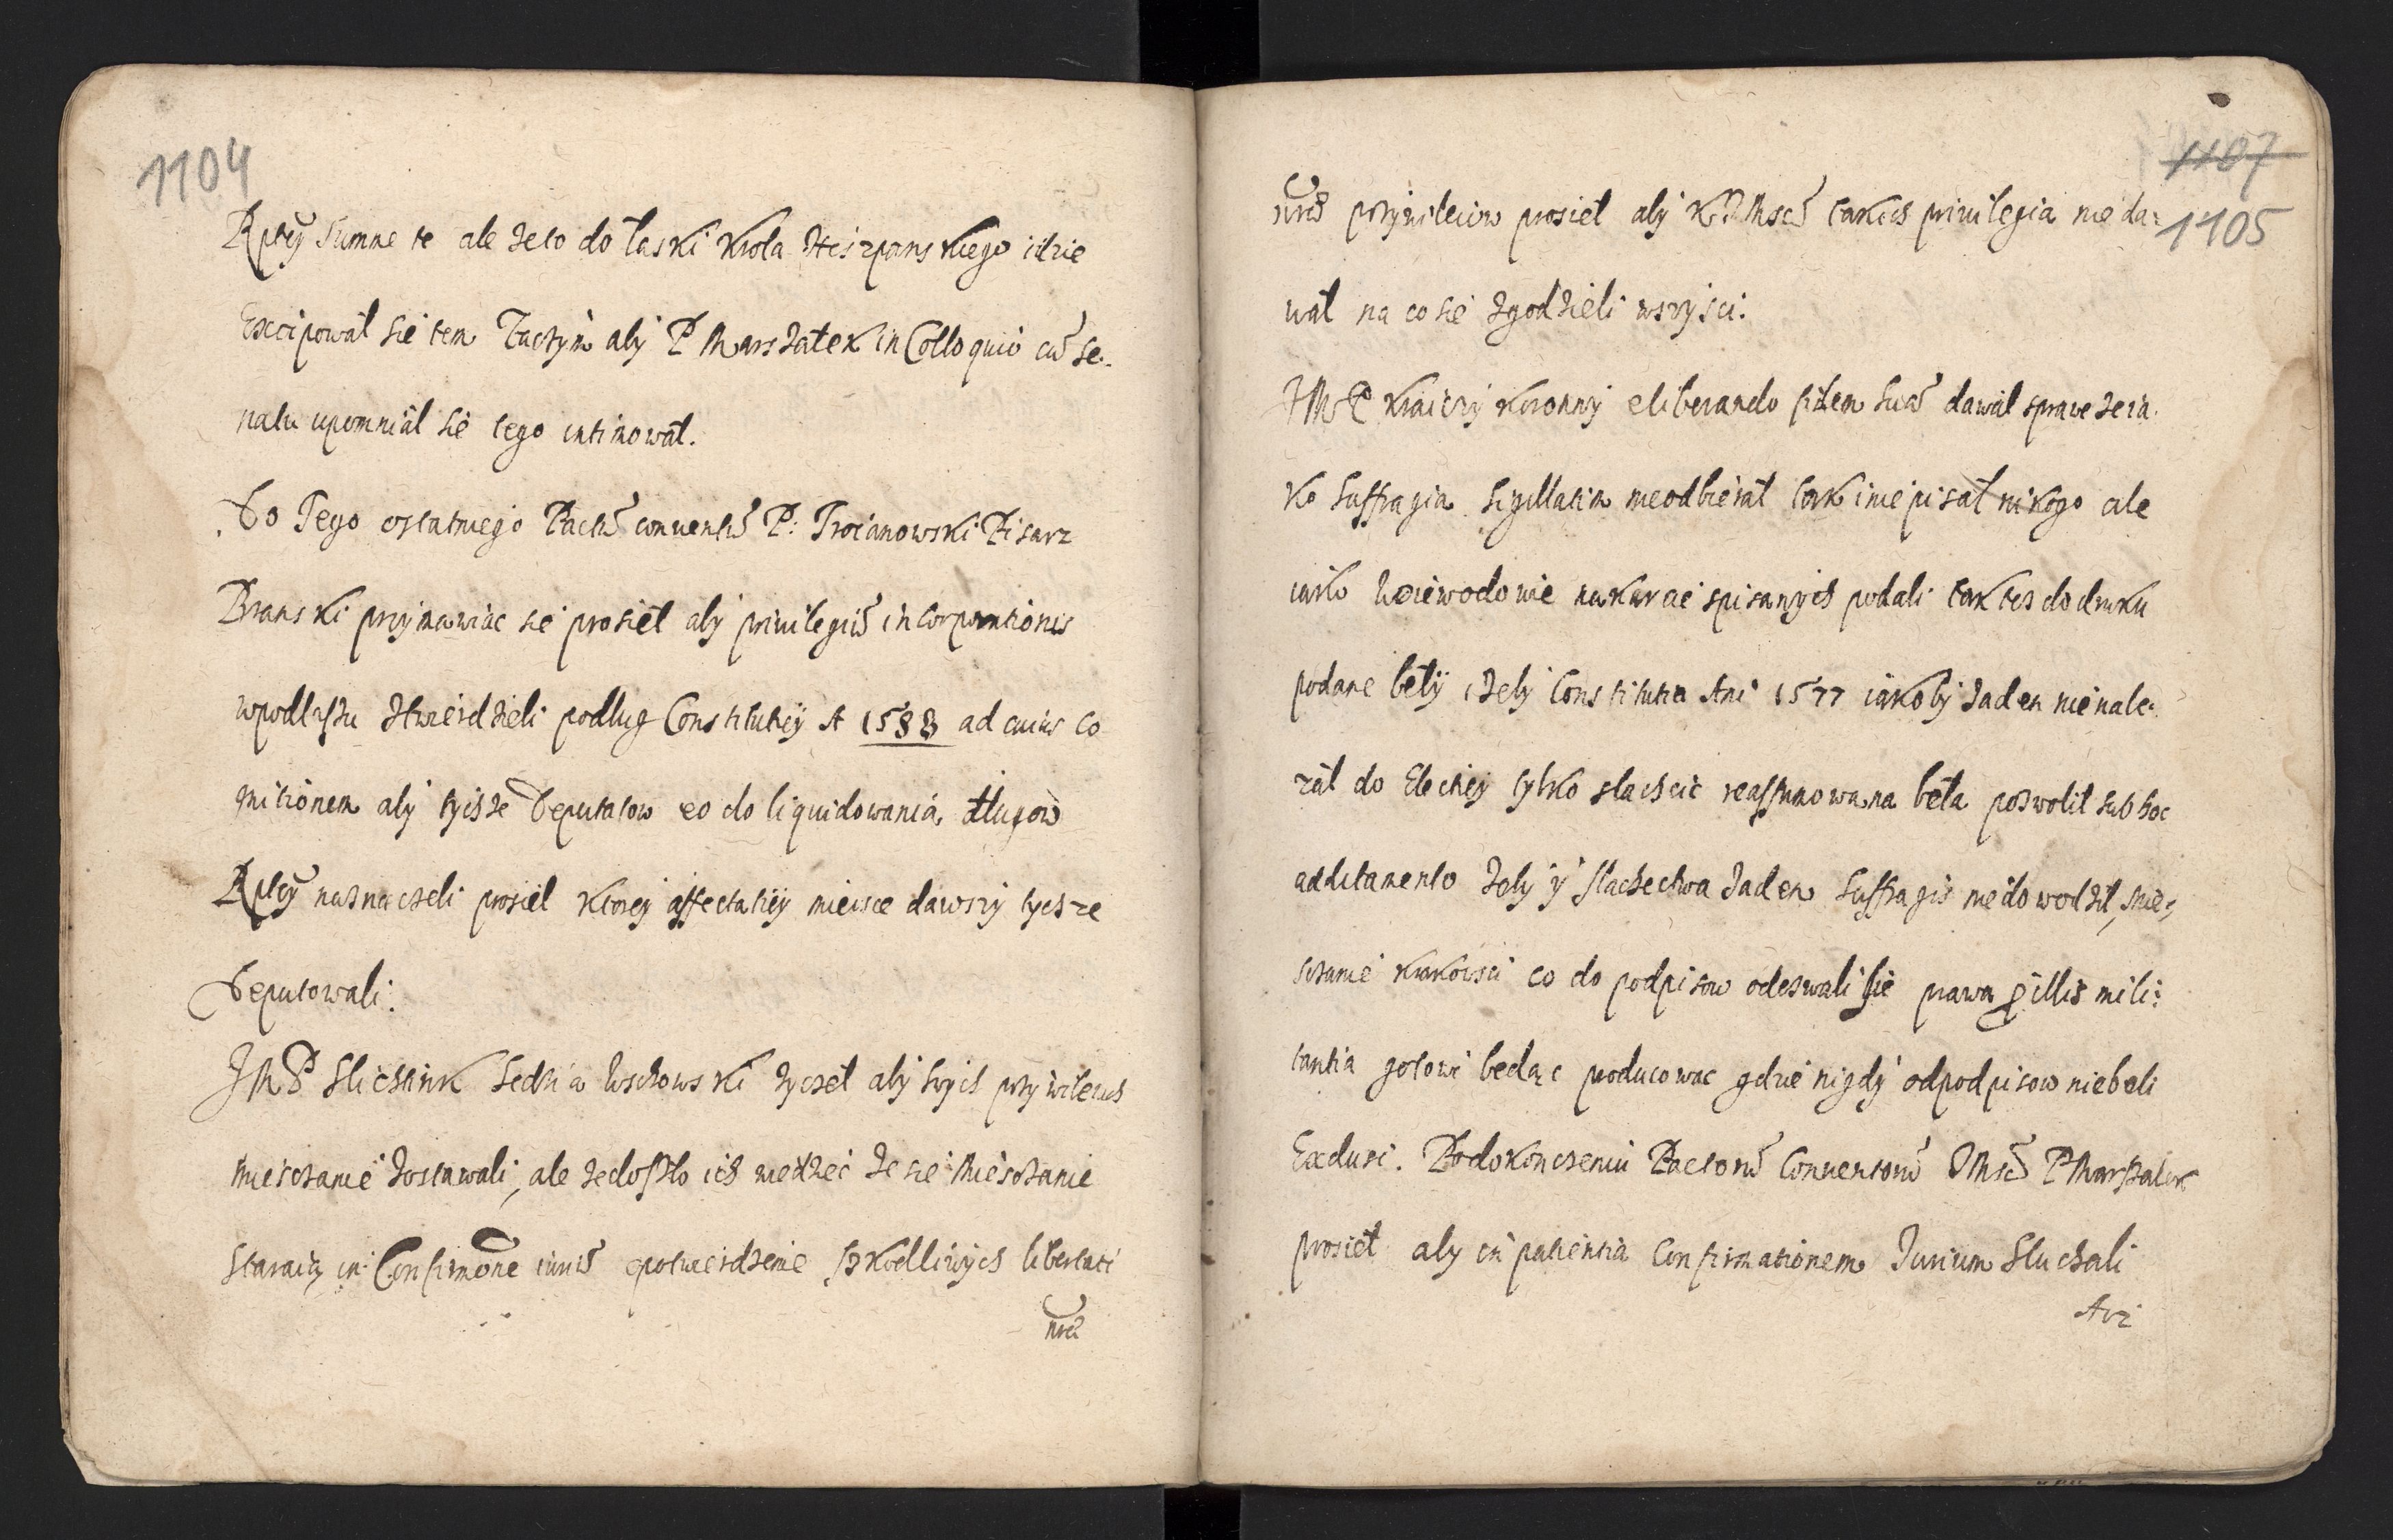 1104
Rptey Summe te ale ze to do łaski Krola Hiszpanskiego idzie
Excipował sie tem Zaczym aby P Marszałek in Colloquio cu Se-
natu upomniał sie tego intimował.
Do Tego ostatniego Pactu conventu P: Troianowski Pisarz
Branski przymawiac sie prosieł aby privilegiu incorporationis
w podlaszu ztwierdzieli podlug Constitutiey A 1588 ad cuius co
gnitionem aby tychze Deputatow co do liquidowania długow
Rptey naznaczeli prosieł ktorey affectatiey mieisce dawszy tychze
Deputowali.
JMP Slichtink Sedzia Wschowski zyczeł aby swych przywileiuch
Mieszczanie zostawali, ale ze doszło ich wiedzec ze sie Mieszczanie
Staraią in Confirmone iuriu o potwierdzenie szkodliwych libertati
nrae
1107
1105
nrae przywileiow prosieł aby K J Mscu takich privilegia nie da-
wał na co sie zgodzieli wszysci.
JMP Kraiczy koronny eliberando fidem sua dawał sprawe ze ia-
ko suffragia sigillatim nie odbierał tak i nie pisał nikogo ale
iako Woiewodowie na karcie spisanych podali tak tez do druku
podane beły, zeby Constitutia Ani 1577 iakoby zaden nie nale-
zał do Electiey tylko slachcic reassumowana beła pozwolił sub hoc
additamento zeby y slachectwa zaden suffragis nie dowodzil, Mie-
szczanie Krakowsci co do podpisow odezwali sie prawa p illis mili-
tantia gotowi bedąc producowac gdzie nigdy od podpisow niebeli
Exclusi. Po dokonczeniu Pactoru Conventoru JMsc P Marszałek
prosieł aby cu patientia Confirmationem Jurium Sluchali